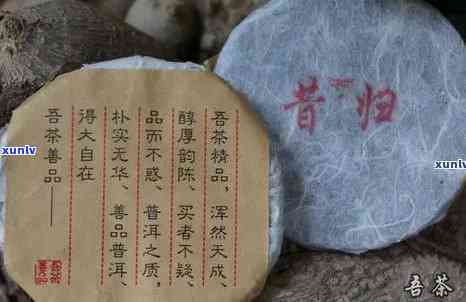 吾茶精品，浑然天成、
醇厚韵陈、买者不疑、
品而不惑、普洱之质，
朴实无华、善品普洱、
得大自在
吾茶善品——
昔归
吾茶
xunlv
xunlv